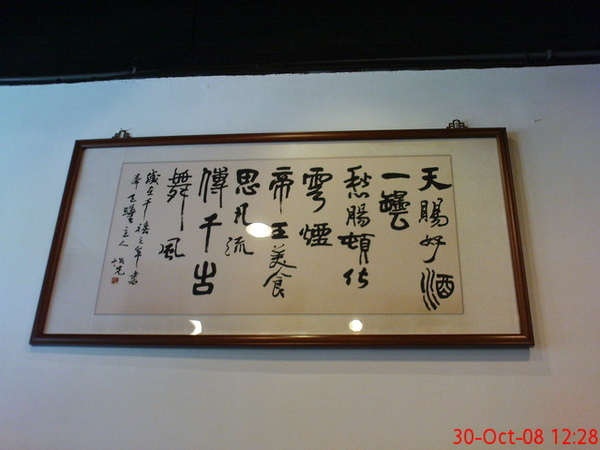 天賜好酒
一罎
愁腸頓化
雲煙
帝王美食
思凡流
傳千古
舞風
歲在千禧之年書
主人
30-Oct-08 12:28